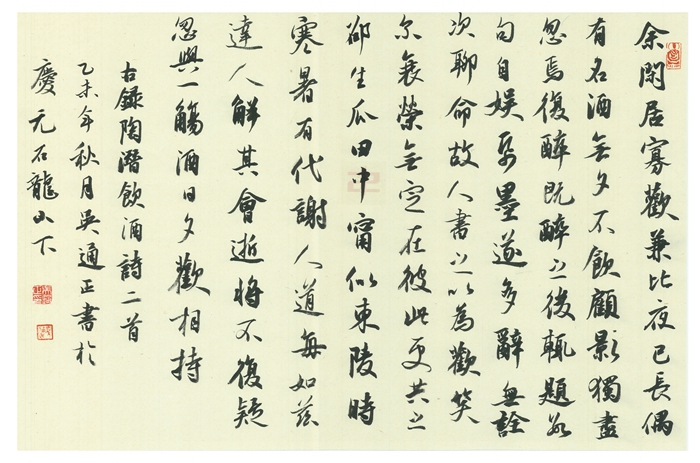 余閑居寡歡兼比夜已長偶
有名酒無夕不飲顧影獨盡
忽焉復醉既醉之後輒題數
句自娛紙墨遂多辭無詮
次聊命故人書之以為歡笑
尔衰榮無定在彼此更共之
邵生瓜田中甯似東陵時
寒暑有代謝人道每如茲
達人解其會逝將不復疑
忽與一觴酒日夕歡相持
右錄陶潛飲酒詩二首
乙未年秋月吳通正書於
慶元石龍山下